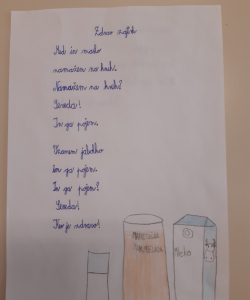 Zdrav zajtrk
Med in maslo
namažem na kruh.
Namažem na kruh?
Seveda!
In ga pojem.
Vzamem jabolko
in ga pojem.
In ga pojem?
Seveda!
Ker je zdravo!
MARMELADA
Mleko